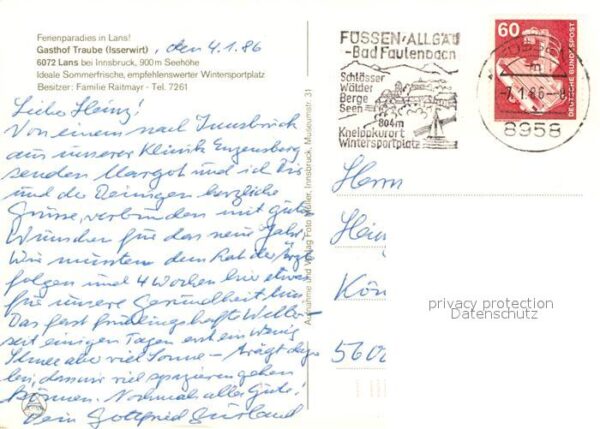 Ferienparadies in Lans!
Gasthof Traube (Isserwirt) , den 4.1.86
6072 Lans bei Innsbruck, 900 m Seehöhe
Ideale Sommerfrische, empfehlenswerter Wintersportplatz
Besitzer: Familie Raitmayr - Tel. 7261
Liebe Heinz!
Von einem nach Innsbruck
aus unserer Klinik Enzensberg
senden Margot und ich Dir
und die Deinigen herzliche
Grüsse, verbunden mit guten
Wünschen für das neue Jahr.
Wir mussten dem Rat der Ärzte
folgen und 4 Wochen hier etwas
für unsere Gesundheit tun.
Das fast frühlingshafte Wetter -
seit einigen Tagen erst ein wenig
Schnee aber viel Sonne - trägt dazu
bei, dass wir viel spazieren gehen
können. Nochmals alles Gute!
Dein Gottfried
Aufnahme und Verlag Foto Müller, Innsbruck, Museumstr. 31
FÜSSEN/ALLGÄU
-Bad Faulenbach
Schlösser
Wälder
Berge
Seen
804m
Kneippkurort
Wintersportplatz
60
DEUTSCHE BUNDESPOST
FÜSSEN
m
-7.1.86-
8958
Herrn
Hein
Kön
privacy protection
Datenschutz
560